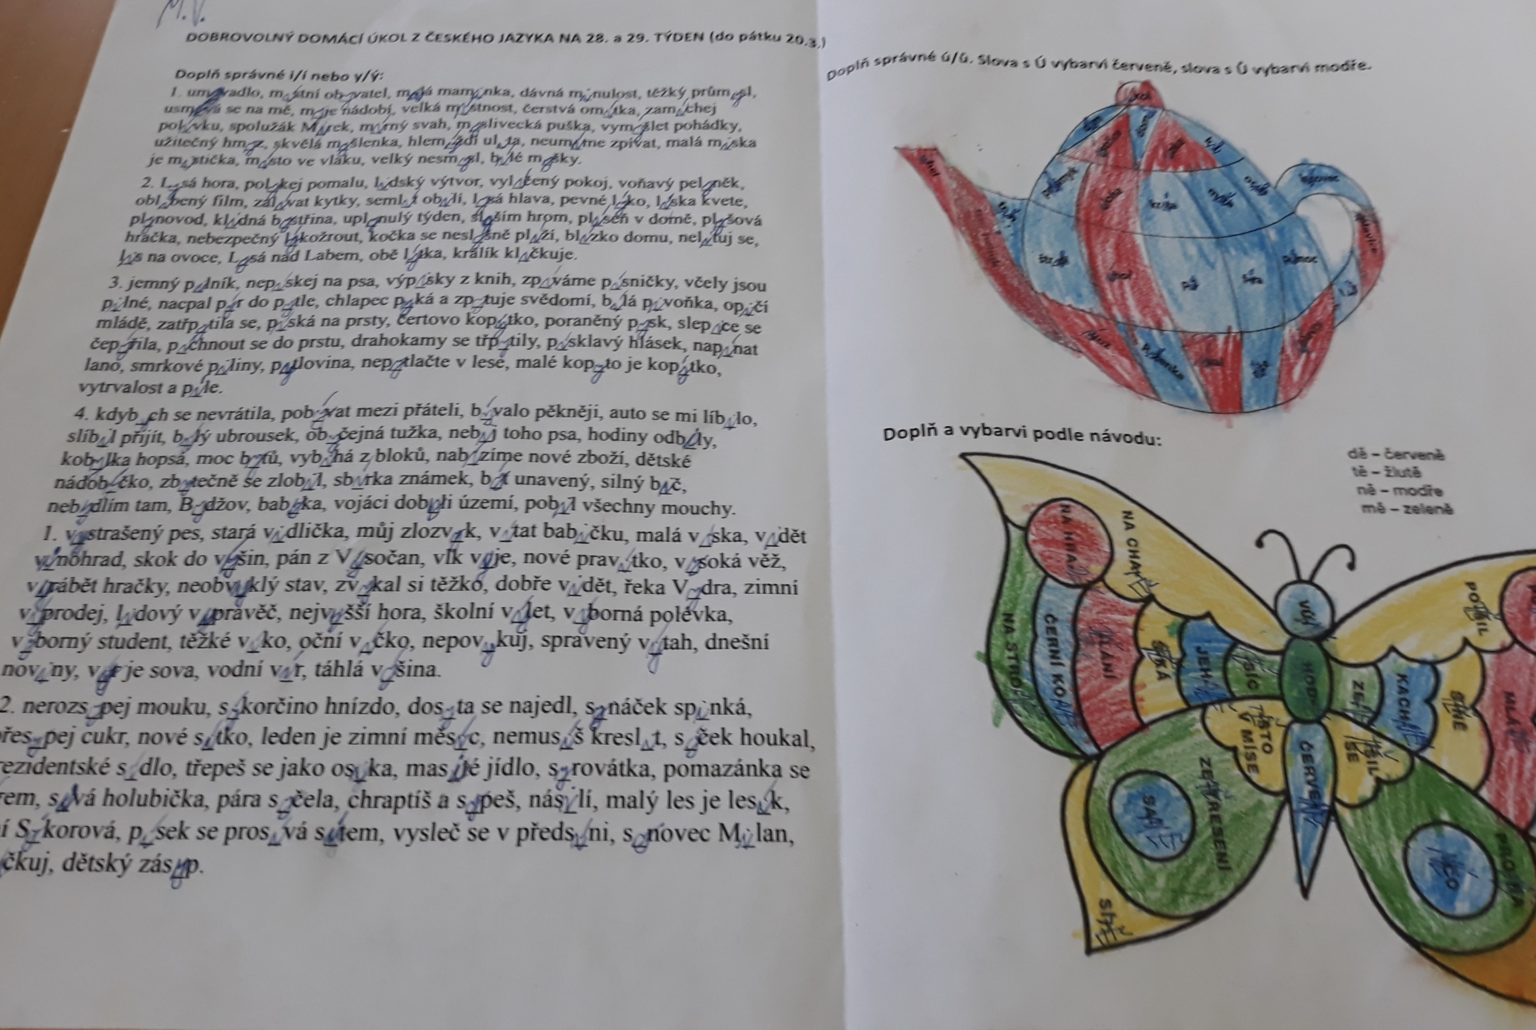 M.V.
DOBROVOLNÝ DOMÁCÍ ÚKOL Z ČESKÉHO JAZYKA NA 28. a 29. TÝDEN (do pátku 20.3.)
Doplň správné i/í nebo y/ý:
1. umyvadlo, místní obyvatel, malá maminka, dávná minulost, těžký průmysl,
usmívá se na mě, myje nádobí, velká místnost, čerstvá omítka, zamíchej
polévku, spolužák Mirek, mírný svah, myslivecká puška, vymýšlet pohádky,
užitečný hmyz, skvělá myšlenka, hlemýždí ulita, neumíme zpívat, malá miska
je mistička, místo ve vlaku, velký nesmysl, bílé myšky.
2. Lysá hora, polykej pomalu, lidský výtvor, vylížený pokoj, voňavý pelyněk,
oblíbený film, zalévat kytky, semlít obilí, lysá hlava, pevné lýko, líska kvete,
plynovod, klidná bystřina, uplynulý týden, slyším hrom, plíseň v domě, plyšová
hračka, nebezpečný lýkožrout, kočka se neslyšně plíží, blízko domu, nelituj se,
lis na ovoce, Lysá nad Labem, obě lýtka, králík kličkuje.
3. jemný pilník, nepískej na psa, výpisky z knih, zpíváme písničky, včely jsou
pilné, nacpal pýr do pytle, chlapec pyká a zpytuje svědomí, bílá pivoňka, opičí
mládě, zatřpytila se, píská na prsty, čertovo kopýtko, poraněný pysk, slepice se
čepýřila, píchnout se do prstu, drahokamy se třpytily, pisklavý hlásek, napínat
lano, smrkové piliny, pytlovina, nepytlačte v lese, malé kopyto je kopýtko,
vytrvalost a píle.
4. kdybych se nevrátila, pobývat mezi přáteli, bývalo pěkněji, auto se mi líbilo,
slíbil přijít, bílý ubrousek, obyčejná tužka, nebij toho psa, hodiny odbily,
kobylka hopsá, moc bytů, vybíhá z bloků, nabízíme nové zboží, dětské
nádobíčko, zbytečně se zlobil, sbírka známek, být unavený, silný bič,
nebydlím tam, Bydžov, babička, vojáci dobyli území, pobil všechny mouchy.
1. vystrašený pes, stará vidlička, můj zlozvyk, vítat babičku, malá víska, vidět
vinohrad, skok do výšin, pán z Vysočan, vlk vyje, nové pravítko, vysoká věž,
vyrábět hračky, neobvyklý stav, zvykal si těžko, dobře vidět, řeka Vydra, zimní
výprodej, lidový vypravěč, nejvyšší hora, školní výlet, výborná polévka,
výborný student, těžké víko, oční víčko, nepovykuj, spravený výtah, dnešní
noviny, výr je sova, vodní vír, táhlá vyšina.
2. nerozsypej mouku, sýkorčino hnízdo, dosyta se najedl, synáček spinká,
řesypej cukr, nové sítko, leden je zimní měsíc, nemusíš kreslit, sýček houkal,
rezidentské sídlo, třepeš se jako osika, masité jídlo, syrovátka, pomazánka se
rem, sivá holubička, pára syčela, chraptíš a sípeš, násilí, malý les je lesík,
í Sýkorová, písek se prosívá sítem, vysleč se v předsíni, synovec Milan,
čkuj, dětský zásyp.
Doplň správné ú/ů. Slova s Ú vybarvi červeně, slova s Ů vybarvi modře.
úhoř
úhel
půl
půlnoc
sůl
Doplň a vybarvi podle návodu:
dě – červeně
tě – žlutě
ně – modře
mě – zeleně
NA HRADĚ
NA CHATĚ
NA STROMĚ
ČERNÍ KONĚ
JEHNĚ
SÍTĚ
ZEMĚTŘESENÍ
TĚSTO
V MÍSE
TĚŠIL
SE
ČERVENĚ